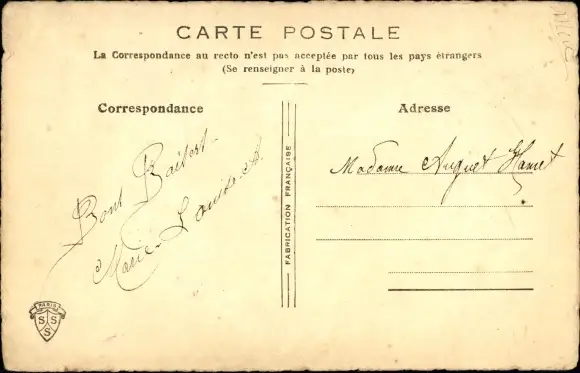 CARTE POSTALE
La Correspondance au recto n'est pas acceptée par tous les pays étrangers
(Se renseigner à la poste)
Correspondance
Adresse
Bont Baibert
Marie-Louise A.
FABRICATION FRANÇAISE
Madame Auguet Hamet
PARIS
S S
S